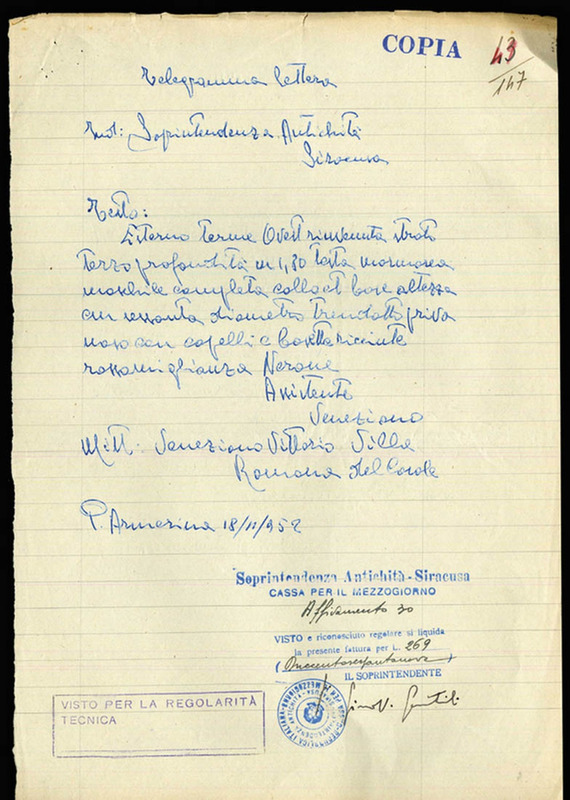 COPIA
43
147
Telegramma lettera
Ind: Soprintendenza Antichità
Siracusa
Testo:
Esterno terme Ovest rinvenuta strato
terzo profondità m 1,30 testa marmorea
maschile completa collo et base altezza
cm sessanta diametro trendotto priva
naso con capelli e barbetta ricciute
rassomiglianza Nerone
Assistente
Veneziano
Mitt: Veneziano Vittorio Villa
Romana del Casale
P. Armerina 18/11/952
Soprintendenza Antichità - Siracusa
CASSA PER IL MEZZOGIORNO
Affidamento 30
VISTO e riconosciuto regolare si liquida
la presente fattura per L. 269
(Duecentosessantanove)
IL SOPRINTENDENTE
Gino V. Gentili
VISTO PER LA REGOLARITÀ
TECNICA